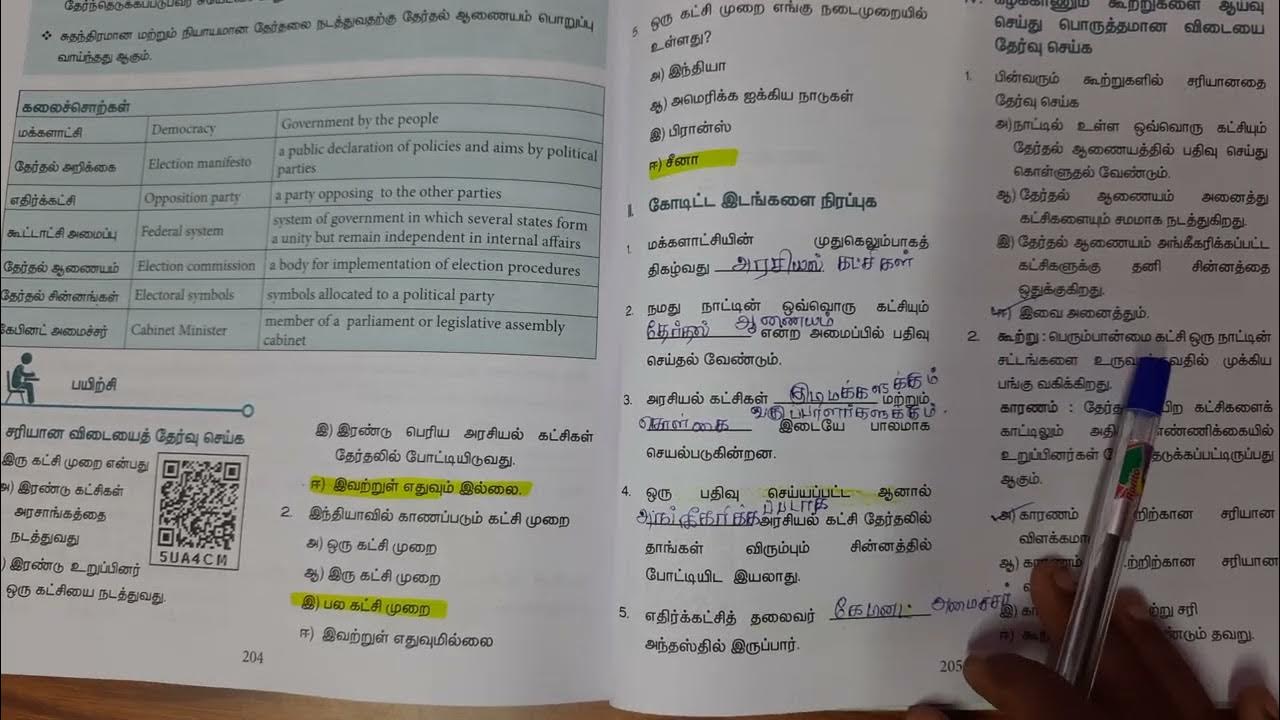 தேர்ந்தெடுக்கப்படுபவர்
❖ சுதந்திரமான மற்றும் நியாயமான தேர்தலை நடத்துவதற்கு தேர்தல் ஆணையம் பொறுப்பு
வாய்ந்தது ஆகும்.
கலைச்சொற்கள்
மக்களாட்சி Democracy Government by the people
தேர்தல் அறிக்கை Election manifesto a public declaration of policies and aims by political
parties
எதிர்க்கட்சி Opposition party a party opposing to the other parties
கூட்டாட்சி அமைப்பு Federal system system of government in which several states form
a unity but remain independent in internal affairs
தேர்தல் ஆணையம் Election commission a body for implementation of election procedures
தேர்தல் சின்னங்கள் Electoral symbols symbols allocated to a political party
கேபினட் அமைச்சர் Cabinet Minister member of a parliament or legislative assembly
cabinet
பயிற்சி
சரியான விடையைத் தேர்வு செய்க
இரு கட்சி முறை என்பது
அ) இரண்டு கட்சிகள்
அரசாங்கத்தை
நடத்துவது
) இரண்டு உறுப்பினர்
ஒரு கட்சியை நடத்துவது.
5UA4CM
இ) இரண்டு பெரிய அரசியல் கட்சிகள்
தேர்தலில் போட்டியிடுவது.
ஈ) இவற்றுள் எதுவும் இல்லை.
2. இந்தியாவில் காணப்படும் கட்சி முறை
அ) ஒரு கட்சி முறை
ஆ) இரு கட்சி முறை
இ) பல கட்சி முறை
ஈ) இவற்றுள் எதுவுமில்லை
204
5. ஒரு கட்சி முறை எங்கு நடைமுறையில்
உள்ளது?
அ) இந்தியா
ஆ) அமெரிக்க ஐக்கிய நாடுகள்
இ) பிரான்ஸ்
ஈ) சீனா
II. கோடிட்ட இடங்களை நிரப்புக
1. மக்களாட்சியின் முதுகெலும்பாகத்
திகழ்வது அரசியல் கட்சிகள்
2. நமது நாட்டின் ஒவ்வொரு கட்சியும்
தேர்தல் ஆணையம் என்ற அமைப்பில் பதிவு
செய்தல் வேண்டும்.
3. அரசியல் கட்சிகள் குடிமக்களுக்கும் மற்றும்
கொள்கை வகுப்பாளர்களுக்கும். இடையே பாலமாக
செயல்படுகின்றன.
4. ஒரு பதிவு செய்யப்பட்ட ஆனால்
அங்கீகரிக்கப்படாத அரசியல் கட்சி தேர்தலில்
தாங்கள் விரும்பும் சின்னத்தில்
போட்டியிட இயலாது.
5. எதிர்க்கட்சித் தலைவர் கேபினட் அமைச்சர்
அந்தஸ்தில் இருப்பார்.
205
IV. கீழ்க்காணும் கூற்றுகளை ஆய்வு
செய்து பொருத்தமான விடையை
தேர்வு செய்க
1. பின்வரும் கூற்றுகளில் சரியானதை
தேர்வு செய்க
அ) நாட்டில் உள்ள ஒவ்வொரு கட்சியும்
தேர்தல் ஆணையத்தில் பதிவு செய்து
கொள்ளுதல் வேண்டும்.
ஆ) தேர்தல் ஆணையம் அனைத்து
கட்சிகளையும் சமமாக நடத்துகிறது.
இ) தேர்தல் ஆணையம் அங்கீகரிக்கப்பட்ட
கட்சிகளுக்கு தனி சின்னத்தை
ஒதுக்குகிறது.
ஈ) இவை அனைத்தும்.
2. கூற்று : பெரும்பான்மை கட்சி ஒரு நாட்டின்
சட்டங்களை முக்கிய
பங்கு வகிக்கிறது.
காரணம் : கட்சிகளைக்
காட்டிலும்
உறுப்பினர்கள்
ஆகும்.
அ) காரணம் சரியான
ஆ) சரியான
இ) சரி
ஈ) தவறு.